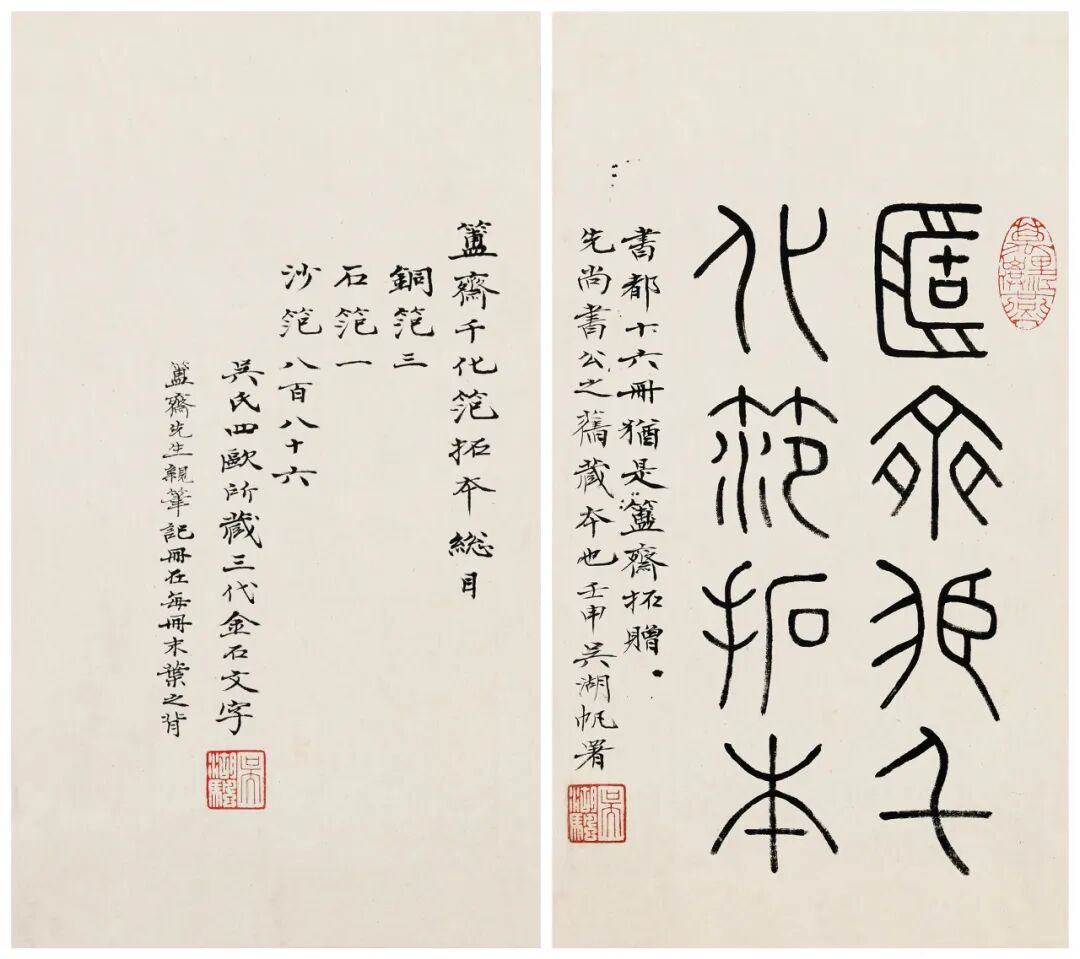 簠齋臧千
化范拓本
書都十六冊猶是簠齋拓贈
先尚書公之舊藏本也壬申吳湖帆署
簠齋千化笵拓夲総目
銅笵三
石笵一
沙笵八百八十六
吳氏四歐所藏三代金石文字
簠齋先生親筆記冊在每冊末葉之背